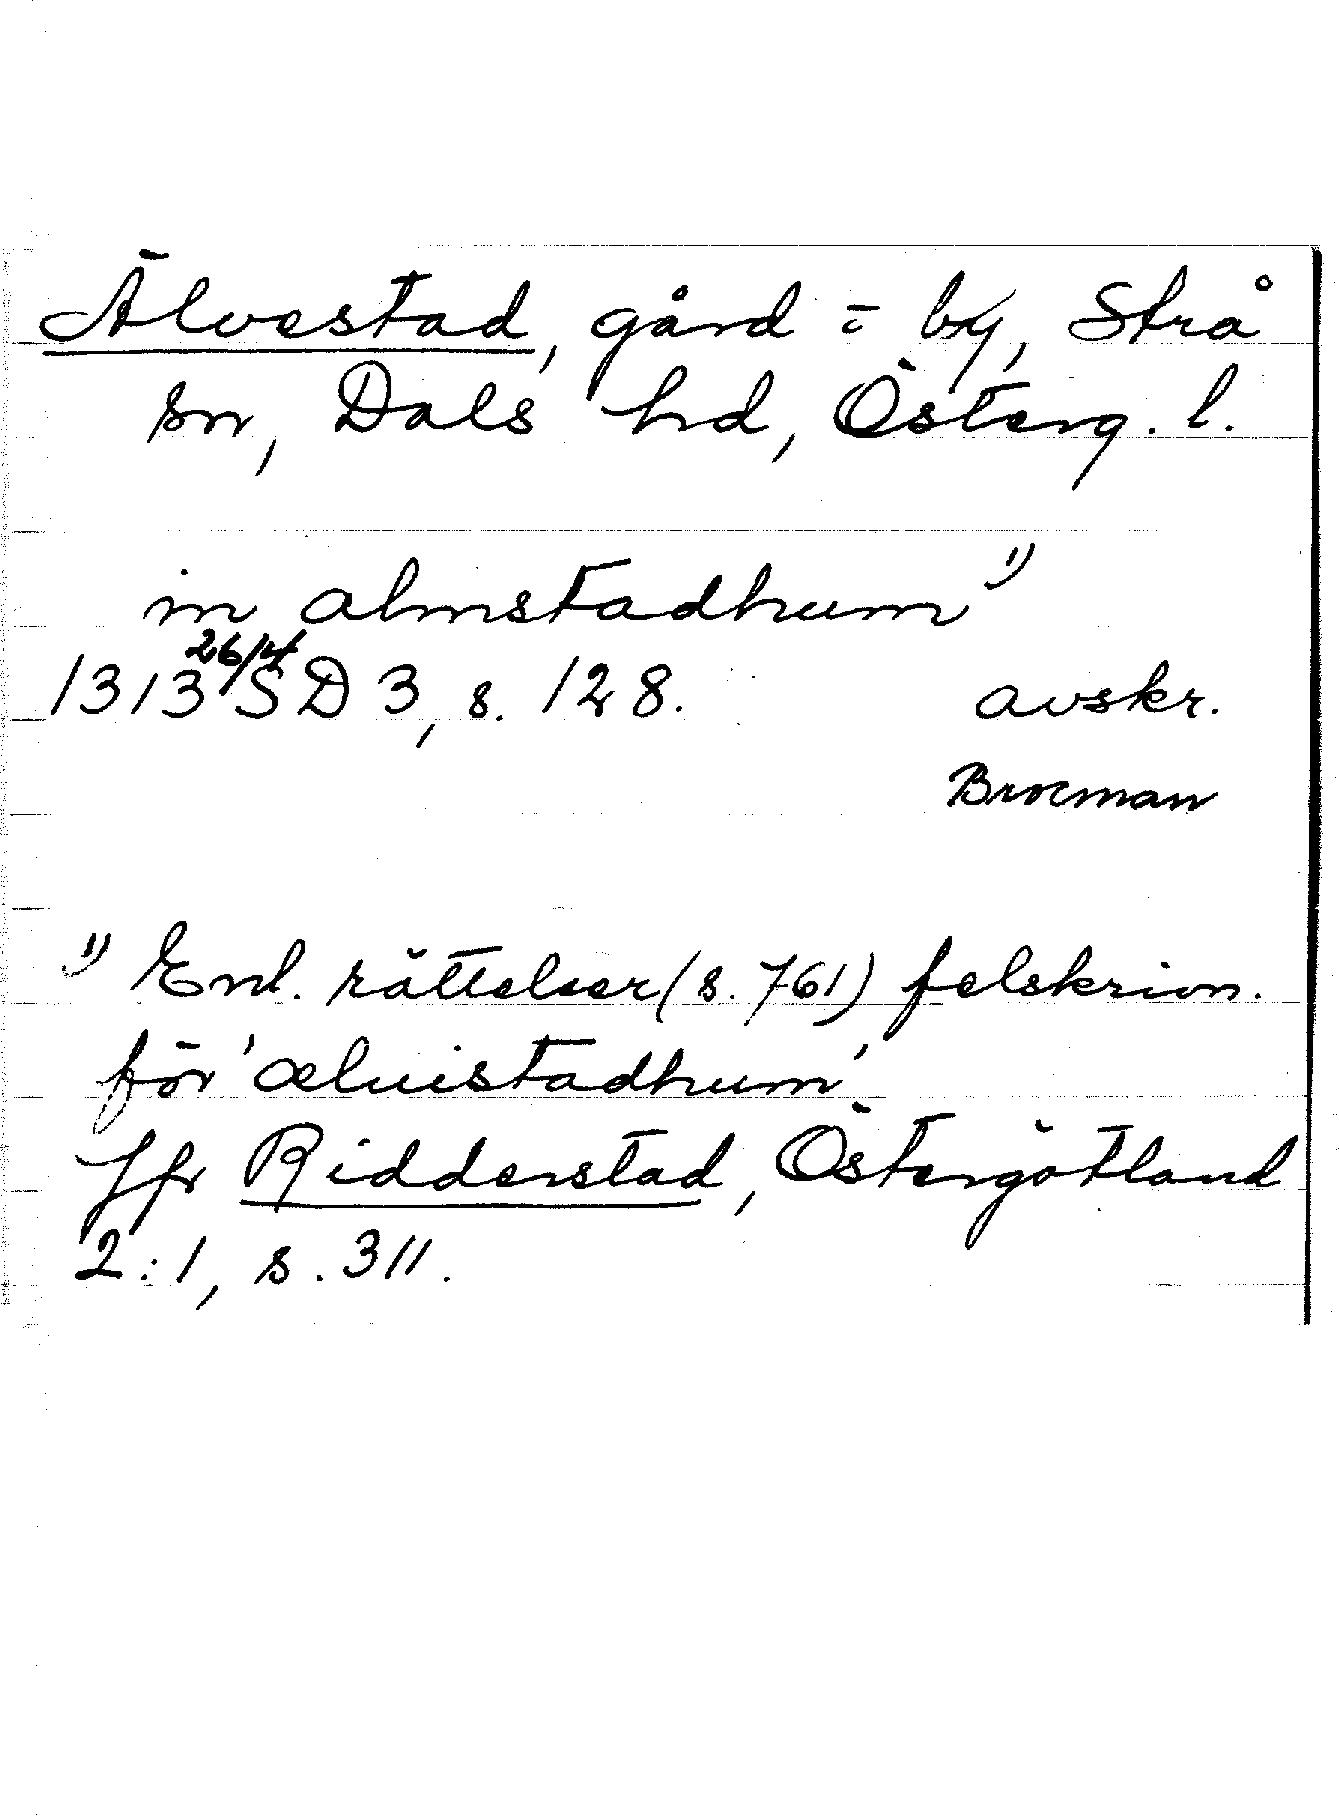 Älvestad, gård = by, Strå
sn, Dals hd, Österg. l.
in almstadhum 1)
1313 26/4 SD 3, s. 128. avskr.
Brocman
1) Enl. rättelser (s. 761) felskrivn.
för 'æluistadhum'
Jfr Ridderstad, Östergötland
2:1, s. 311.